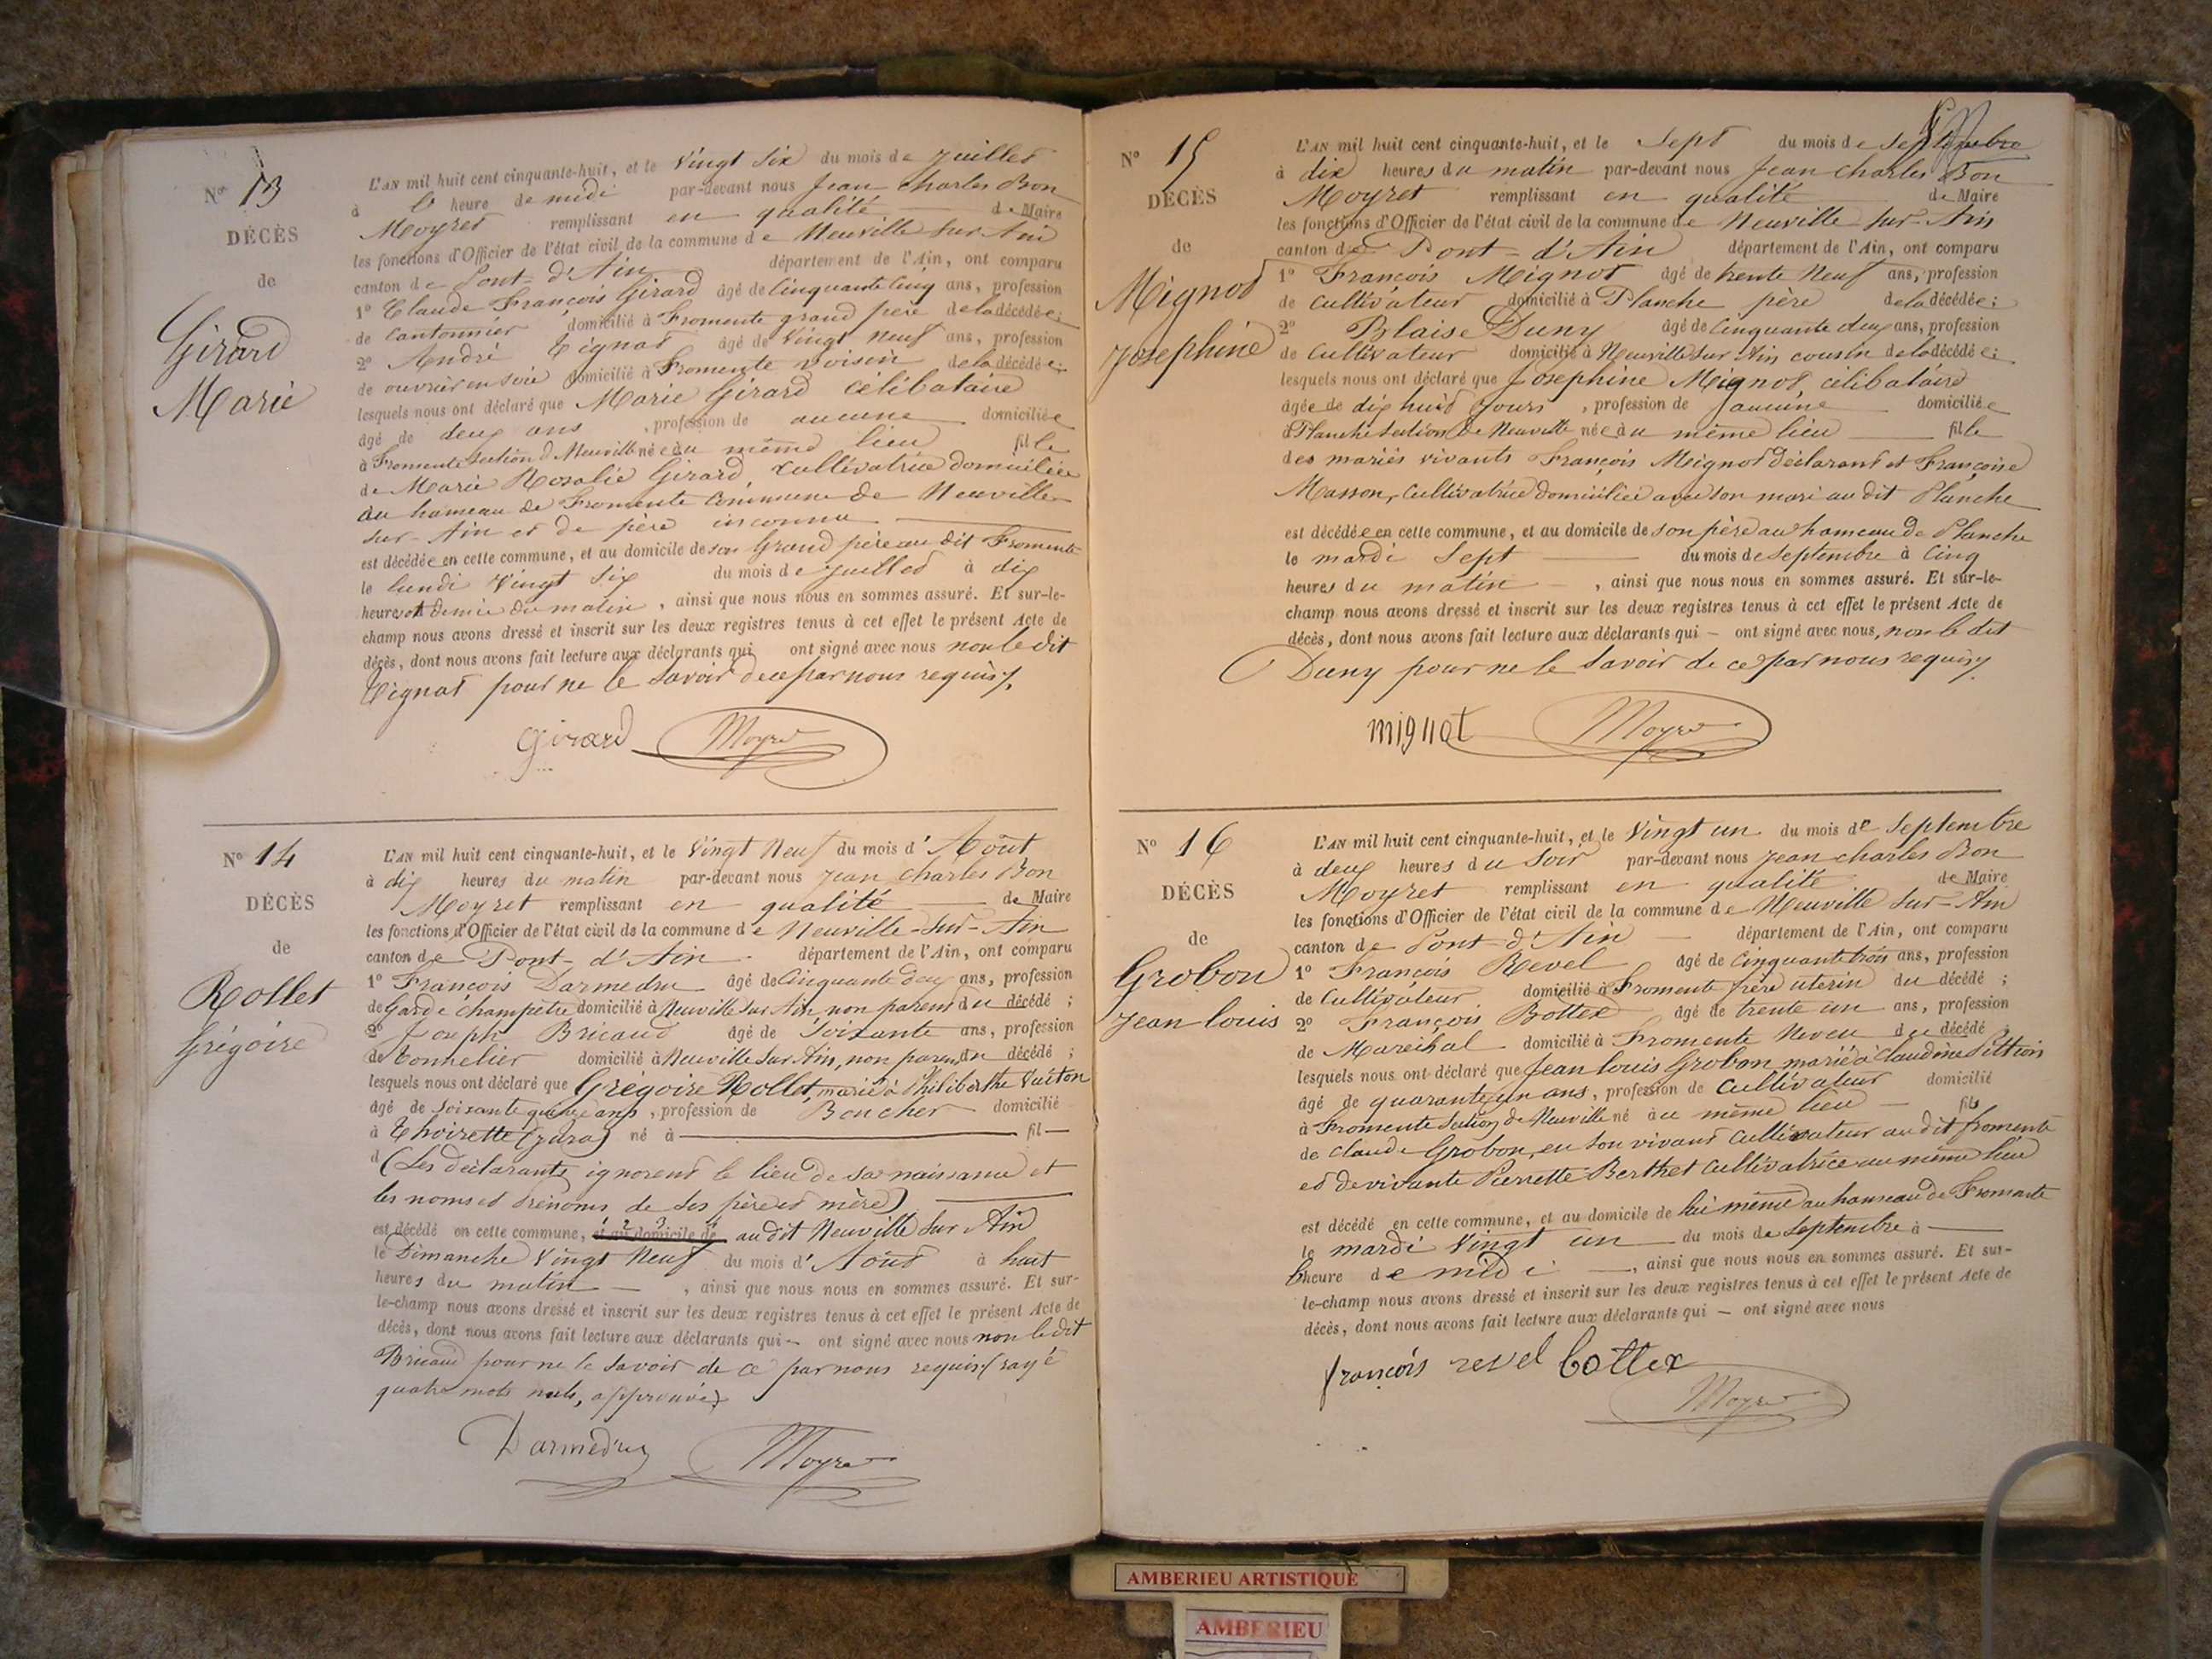 N° 13
DÉCÈS
de
Girard
Marie
L'AN mil huit cent cinquante-huit, et le Vingt Six du mois de Juillet
à l' heure de midi par-devant nous Jean Charles Bon
Moyret remplissant en qualité de Maire
les fonctions d'Officier de l'état civil de la commune de Neuville sur Ain
canton de Pont-d'Ain département de l'Ain, ont comparu
1° Claude François Girard âgé de Cinquante Cinq ans, profession
de Cantonnier domicilié à Fromente grand père de la décédée;
2° André Tignat âgé de Vingt Neuf ans, profession
de ouvrier en soie domicilié à Fromente voisin de la décédée;
lesquels nous ont déclaré que Marie Girard célibataire
âgé de deux ans , profession de aucune domiciliée
à Fromente Section d Neuville née au même lieu fille
de Marie Rosalie Girard, Cultivatrice domiciliée
au hameau de Fromente Commune de Neuville
sur-Ain et de père inconnu
est décédée en cette commune, et au domicile de son Grand père au dit Fromente
le lundi Vingt Six du mois de Juillet à dix
heures et demie du matin , ainsi que nous nous en sommes assuré. Et sur-le-
champ nous avons dressé et inscrit sur les deux registres tenus à cet effet le présent Acte de
décès, dont nous avons fait lecture aux déclarants qui ont signé avec nous non le dit
Tignat pour ne le savoir de ce par nous requis.
Girard Moyret
N° 14
DÉCÈS
de
Rollet
Grégoire
L'AN mil huit cent cinquante-huit, et le Vingt Neuf du mois d'Août
à dix heures du matin par-devant nous Jean Charles Bon
Moyret remplissant en qualité de Maire
les fonctions d'Officier de l'état civil de la commune de Neuville-Sur-Ain
canton de Pont-d'Ain département de l'Ain, ont comparu
1° François Darmedru âgé de Cinquante deux ans, profession
de Garde Champêtre domicilié à Neuville Sur Ain non parent du décédé ;
2° Joseph Bricaud âgé de Soixante ans, profession
de tonnelier domicilié à Neuville Sur Ain, non parent du décédé ;
lesquels nous ont déclaré que Grégoire Rollet, marié à Philiberthe Vuiton
âgé de Soixante quinze ans , profession de Boucher domicilié
à Thoirette (Jura) né à fil
d (Les déclarants ignorent le lieu de sa naissance et
les noms et prénoms de ses père et mère)
est décédé en cette commune, et au domicile de au dit Neuville Sur Ain
le Dimanche Vingt Neuf du mois d'Août à huit
heures du matin , ainsi que nous nous en sommes assuré. Et sur-
le-champ nous avons dressé et inscrit sur les deux registres tenus à cet effet le présent Acte de
décès, dont nous avons fait lecture aux déclarants qui ont signé avec nous non le dit
Bricaud pour ne le savoir de ce par nous requis (rayé
quatre mots nuls, approuvés)
Darmedru Moyret
N° 15
DÉCÈS
de
Mignot
Josephine
L'AN mil huit cent cinquante-huit, et le Sept du mois de Septembre
à dix heures du matin par-devant nous Jean Charles Bon
Moyret remplissant en qualité de Maire
les fonctions d'Officier de l'état civil de la commune de Neuville Sur-Ain
canton de Pont-d'Ain département de l'Ain, ont comparu
1° François Mignot âgé de trente Neuf ans, profession
de Cultivateur domicilié à Planche père de la décédée;
2° Blaise Duny âgé de Cinquante deux ans, profession
de Cultivateur domicilié à Neuville Sur Ain cousin de la décédée;
lesquels nous ont déclaré que Josephine Mignot célibataire
âgée de dix huit Jours , profession de aucune domiciliée
à Planche Section de Neuville née au même lieu fille
des mariés vivants François Mignot déclarant et Françoise
Masson, Cultivatrice domiciliée avec son mari au dit Planche
est décédée en cette commune, et au domicile de son père au hameau de Planche
le mardi Sept du mois de Septembre à Cinq
heures du matin , ainsi que nous nous en sommes assuré. Et sur-le-
champ nous avons dressé et inscrit sur les deux registres tenus à cet effet le présent Acte de
décès, dont nous avons fait lecture aux déclarants qui – ont signé avec nous, non le dit
Duny pour ne le savoir de ce par nous requis.
mignot Moyret
N° 16
DÉCÈS
de
Grobon
Jean Louis
L'AN mil huit cent cinquante-huit, et le Vingt un du mois de Septembre
à deux heures du Soir par-devant nous Jean Charles Bon
Moyret remplissant en qualité de Maire
les fonctions d'Officier de l'état civil de la commune de Neuville Sur-Ain
canton de Pont-d'Ain département de l'Ain, ont comparu
1° François Revel âgé de Cinquante trois ans, profession
de Cultivateur domicilié à Fromente frère uterin du décédé ;
2° François Bottex âgé de trente un ans, profession
de Marechal domicilié à Fromente Neveu du décédé ;
lesquels nous ont déclaré que Jean Louis Grobon, marié à Claudine Pittion
âgé de quarante un ans, profession de Cultivateur domicilié
à Fromente Section de Neuville né au même lieu fils
de Claude Grobon, en son vivant Cultivateur au dit fromente
et de vivante Pierrette Berthet Cultivatrice au même lieu
est décédé en cette commune, et au domicile de lui même au hameau de Fromente
le mardi Vingt un du mois de Septembre à
l'heure de midi , ainsi que nous nous en sommes assuré. Et sur-
le-champ nous avons dressé et inscrit sur les deux registres tenus à cet effet le présent Acte de
décès, dont nous avons fait lecture aux déclarants qui – ont signé avec nous
françois revel bottex
Moyret
AMBERIEU ARTISTIQUE
AMBERIEU